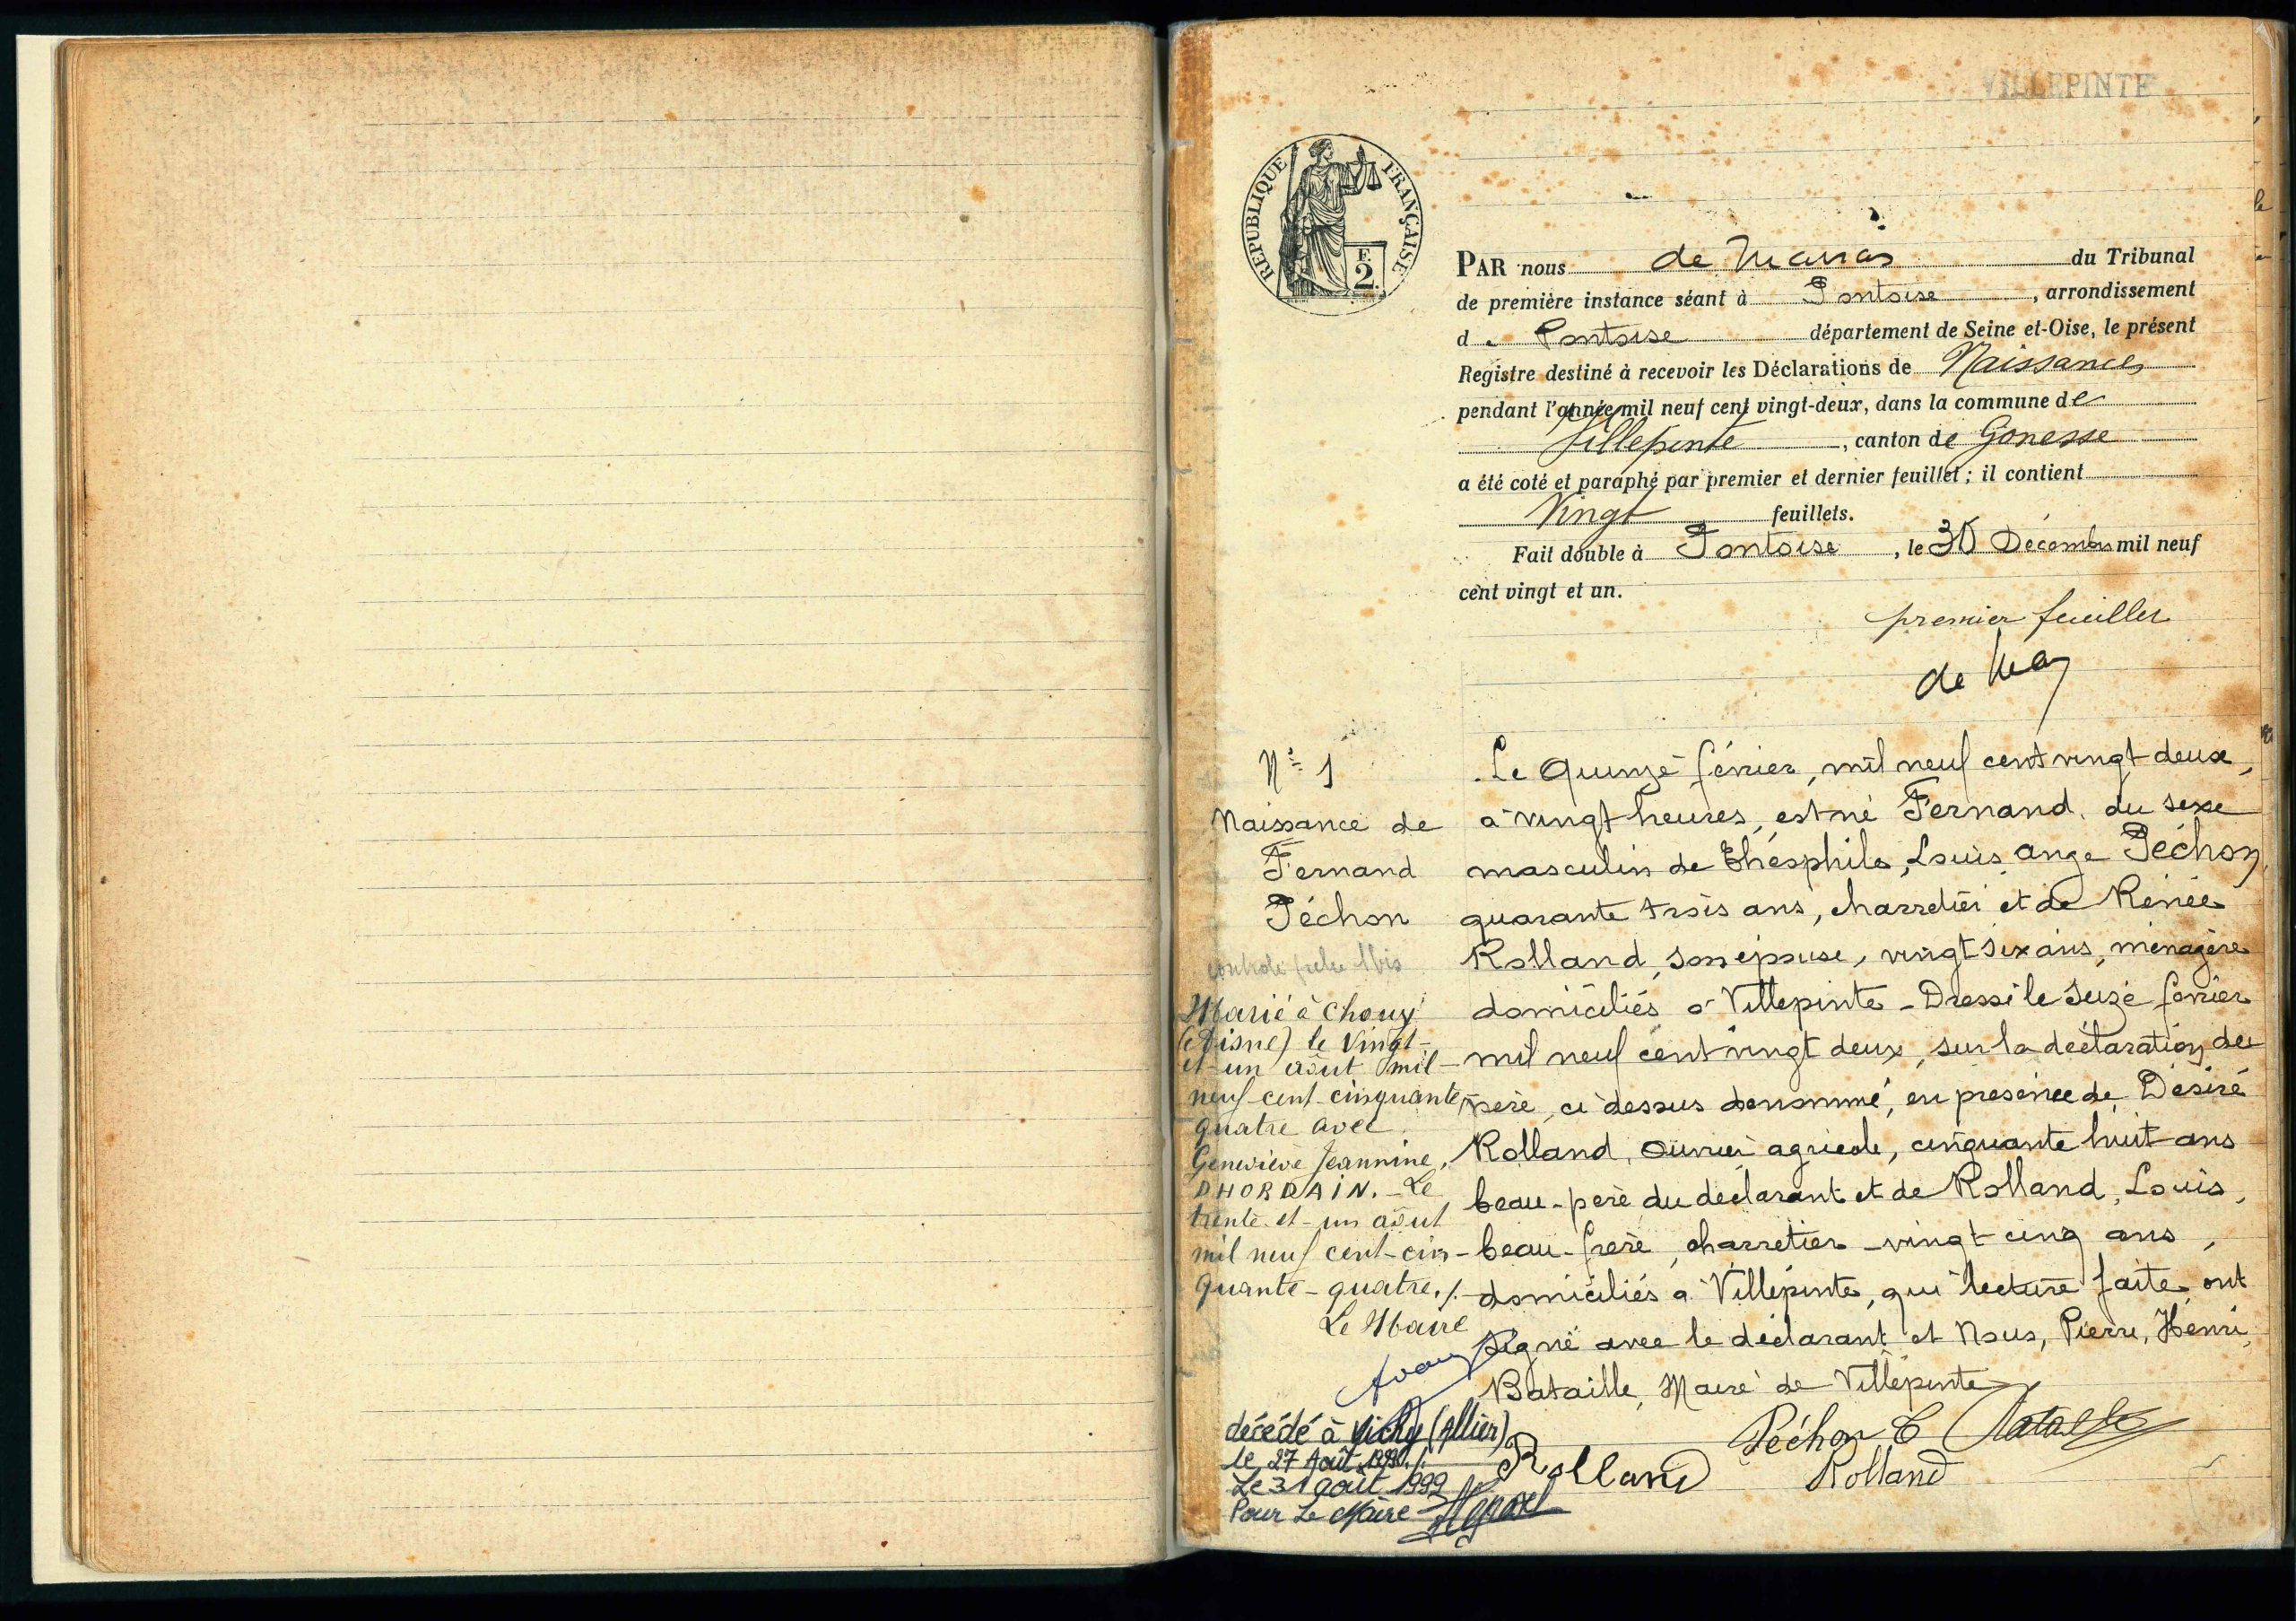 VILLEPINTE
REPUBLIQUE FRANÇAISE
F.
2.
PAR nous du Tribunal
de première instance séant à Pontoise, arrondissement
de Pontoise département de Seine et-Oise, le présent
Registre destiné à recevoir les Déclarations de Naissances
pendant l'année mil neuf cent vingt-deux, dans la commune de
Villepinte, canton de Gonesse
a été coté et paraphé par premier et dernier feuillet ; il contient
Vingt feuillets.
Fait double à Pontoise, le 30 Décembre mil neuf
cent vingt et un.
premier feuillet
N° 1
Naissance de
Fernand
Péchon
Marié à Chouy
(Aisne) le Vingt-
et-un août mil-
neuf-cent-cinquante
quatre avec
Geneviève Jeannine,
DHORDAIN. - Le
trente-et-un août
mil neuf cent-cin-
quante-quatre./.
Le Maire
décédé à Vichy (Allier)
le 27 Août
Le 31 août 1999
Pour Le Maire
Le Quinze février, mil neuf cent vingt deux,
à vingt heures, est né Fernand, du sexe
masculin de Théophile, Louis, ange Péchon,
quarante trois ans, charretier et de Rénée
Rolland, son épouse, vingt six ans, ménagère
domiciliés à Villepinte - Dressé le seize février
mil neuf cent vingt deux, sur la déclaration du
père, ci dessus dénommé, en présence de Désiré
Rolland, ouvrier agricole, cinquante huit ans
beau-père du déclarant et de Rolland, Louis,
beau-frère, charretier - vingt cinq ans,
domiciliés à Villepinte, qui lecture faite, ont
signé avec le déclarant et Nous, Pierre, Henri,
Bataille, Maire de Villepinte
Péchon Bataille
Rolland Rolland